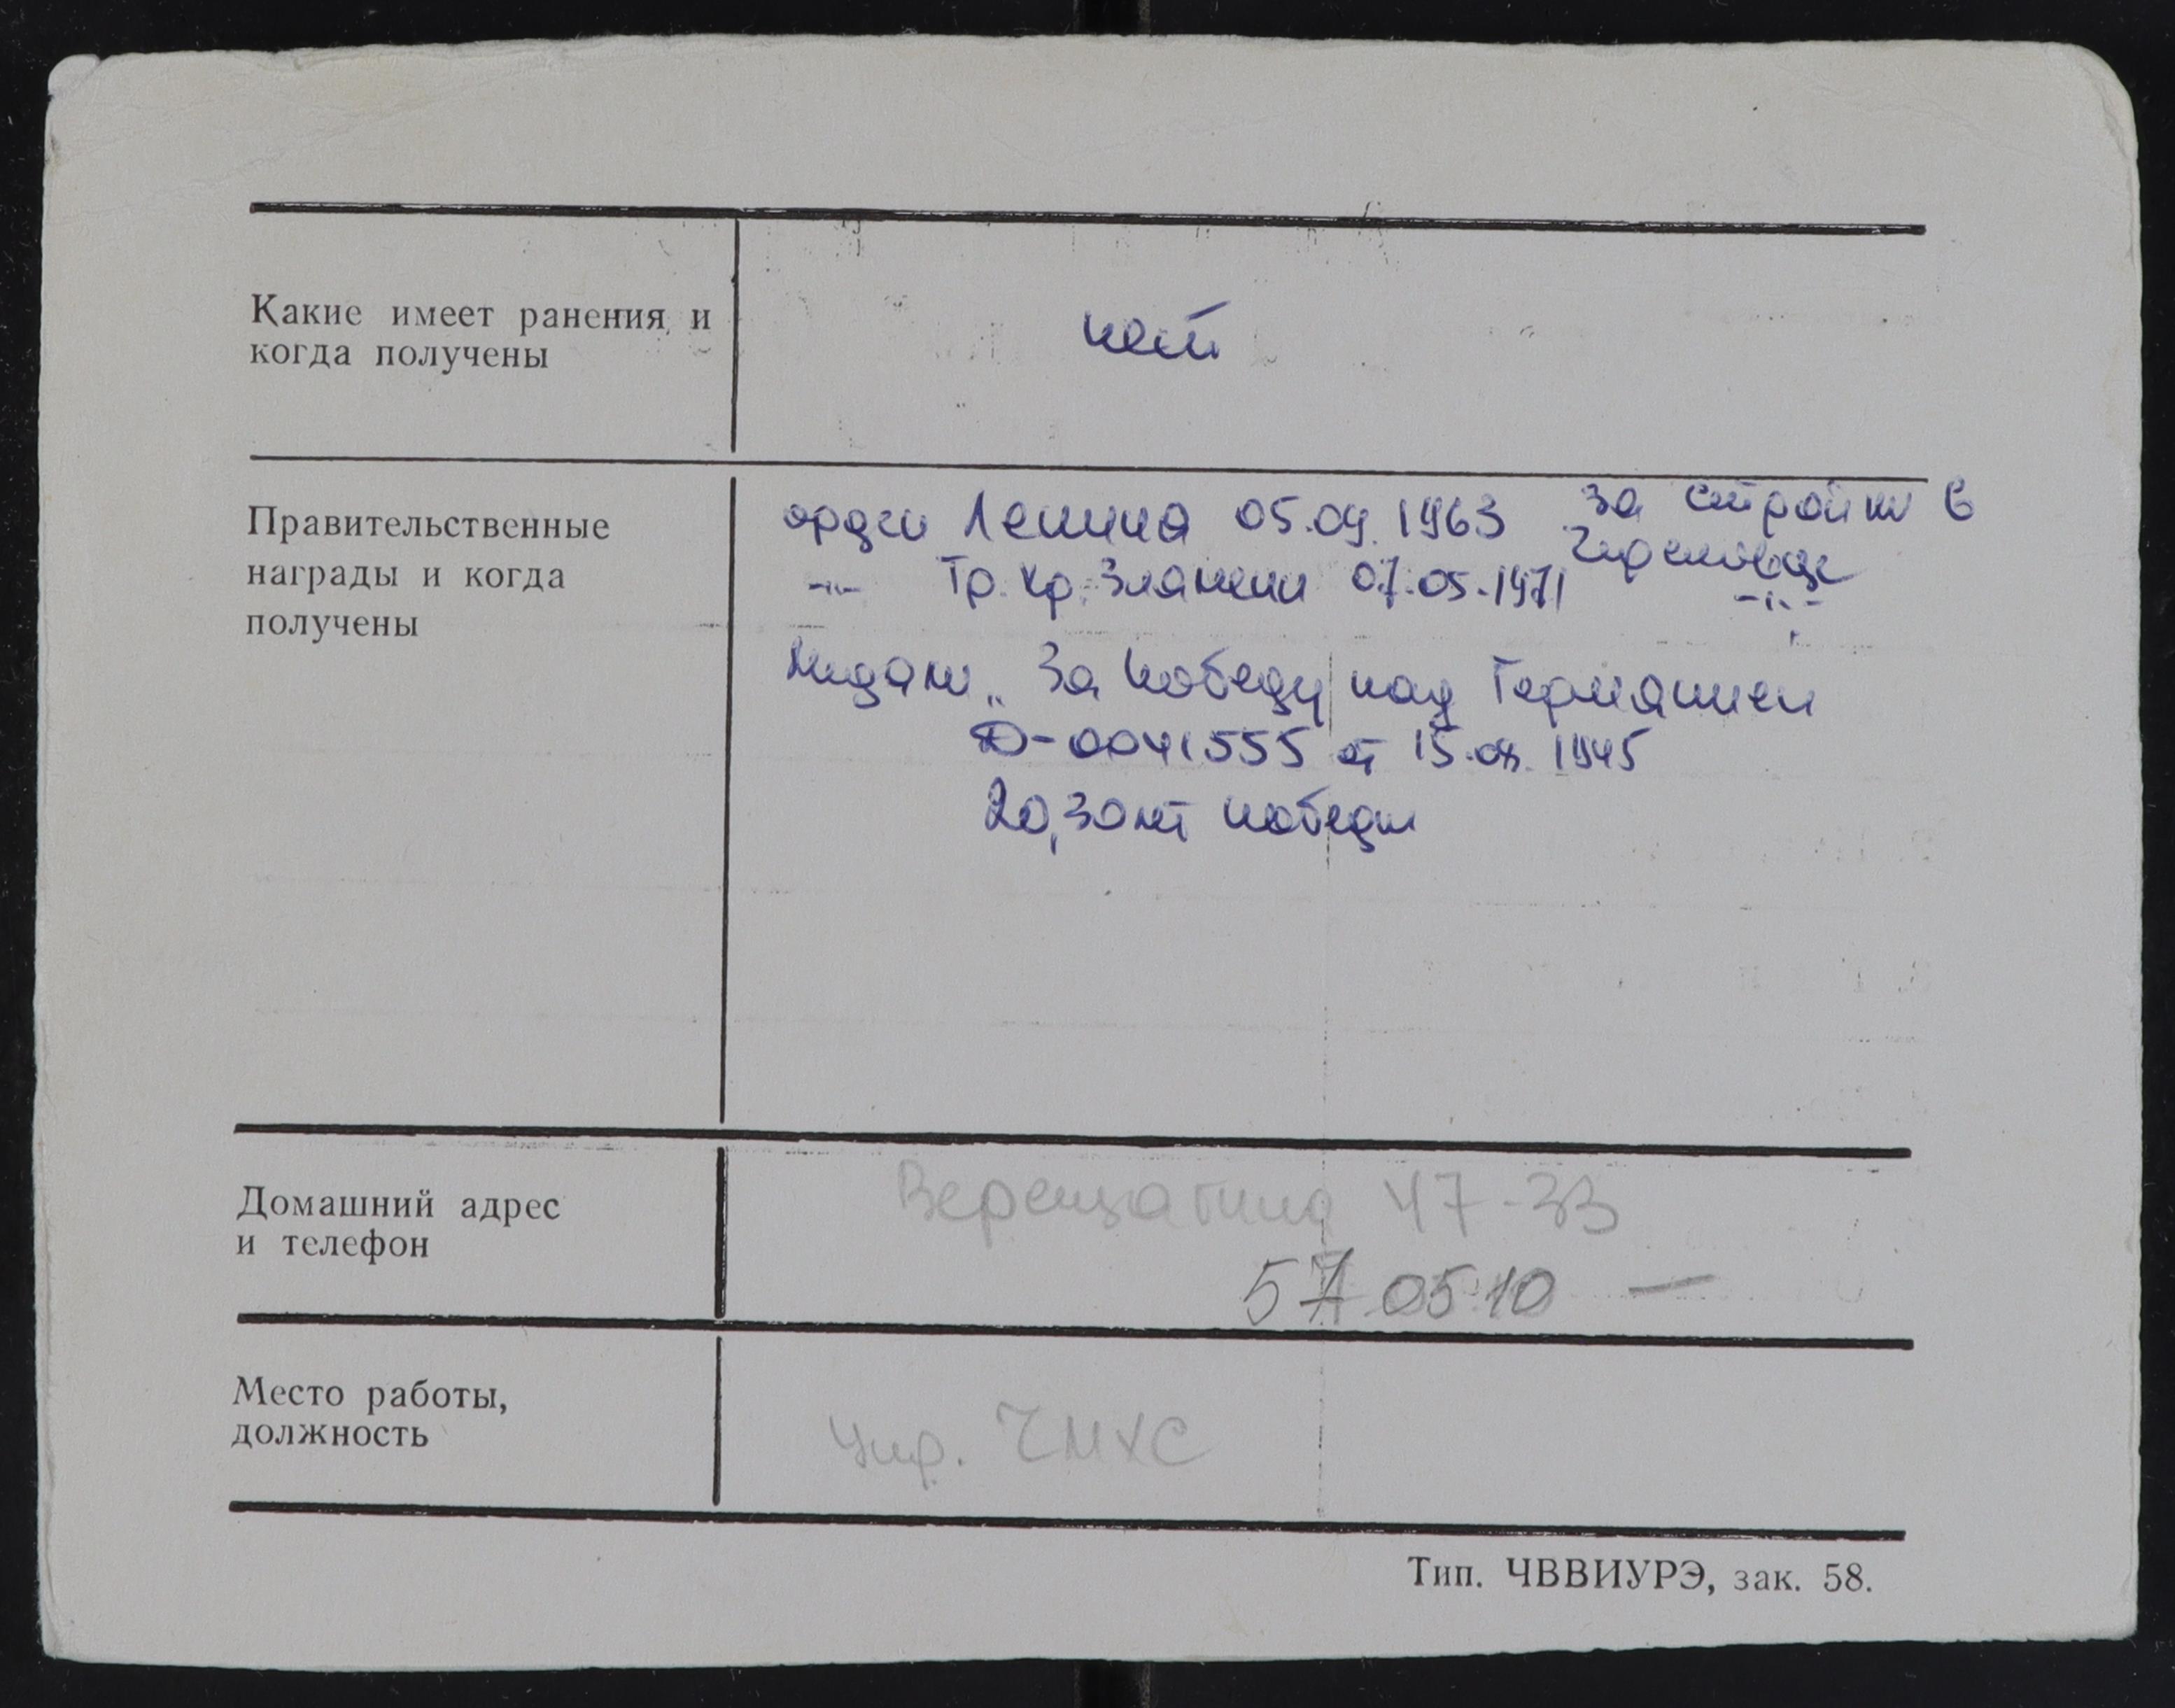 Какие имеет ранения и
когда получены
нет
Правительственные
награды и когда
получены
орден Ленина 05.09.1963 за стройки в
Череповце
-"- Тр. Кр. Знамени 07.05.1971 -"-
Медали „За победу над Германией
Ф-0041555 от 15.08.1945
20, 30 лет победы
Домашний адрес
и телефон
Верещагина 47-33
57 05 10 —
Место работы,
должность
Упр. ЧМХС
Тип. ЧВВИУРЭ, зак. 58.